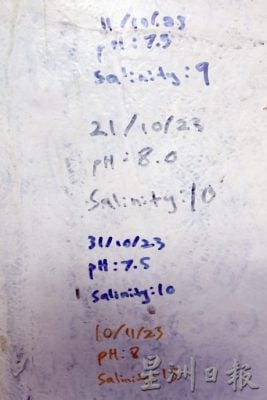 11/10/23
pH: 7.5
Salinity: 9
21/10/23
pH: 8.0
Salinity: 10
31/10/23
pH: 7.5
Salinity: 10
10/11/23
pH: 8
Salinity:
星洲日报